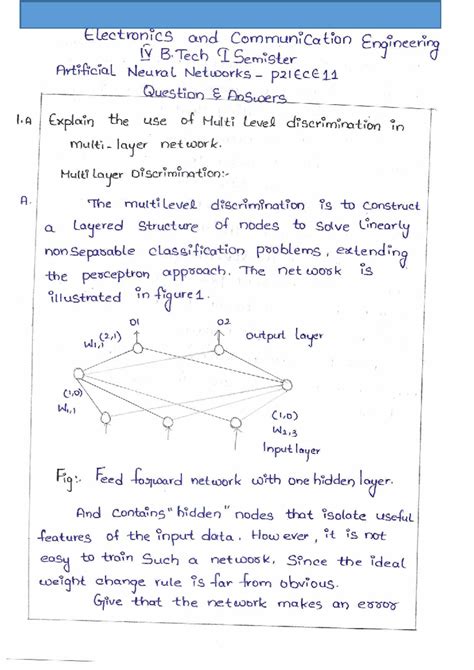 Electronics and Communication Engineering
IV B.Tech I Semister
Artificial Neural Networks - P21ECE11
Question & Answers
1.A Explain the use of Multi Level discrimination in
multi-layer network.
Multi Layer Discrimination:-
A. The multilevel discrimination is to construct
a Layered structure of nodes to solve linearly
nonseparable classification problems, extending
the perceptron approach. The network is
illustrated in figure 1.
O1 O2
W1,1 (2,1) output layer
(1,0)
W1,1
(1,0)
W2,3
Input layer
Fig:- Feed forward network with one hidden layer.
And contains "hidden" nodes that isolate useful
features of the input data. However, it is not
easy to train such a network. Since the ideal
weight change rule is far from obvious.
Give that the network makes an error